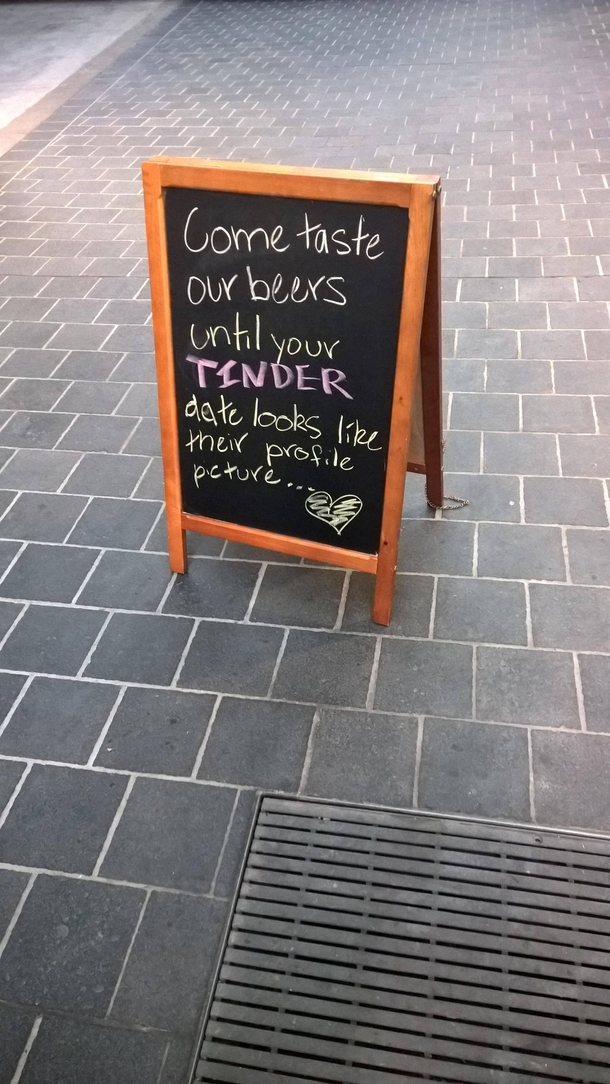 Come taste
our beers
until your
TINDER
date looks like
their profile
picture...